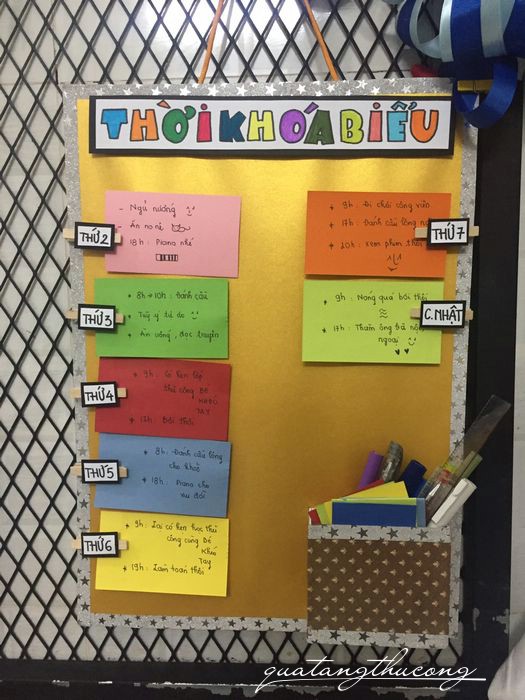 THỜI KHÓA BIỂU
THỨ 2
- Ngủ nướng
- Ăn no nê
18h : Piano nhé
THỨ 3
* 8h → 10h : Đánh cầu
* Tuỳ ý tự do
* Ăn uống, đọc truyện
THỨ 4
* 9h : Có hẹn lớp
thủ công BÉ
KHÉO
TAY
* 17h : Bơi thôi
THỨ 5
* 8h : Đánh cầu lông
cho khoẻ
* 18h : Piano cho
vui đời
THỨ 6
* 9h : Lại có hẹn học thủ
công cùng Bé
Khéo
Tay
* 19h : Làm toán thôi
THỨ 7
* 9h : Đi chơi công viên
* 17h : Đánh cầu lông
* 20h : Xem phim thôi
C.NHẬT
* 9h : Nóng quá bơi thôi
* 17h : Thăm ông bà nội
ngoại
quatangthucong